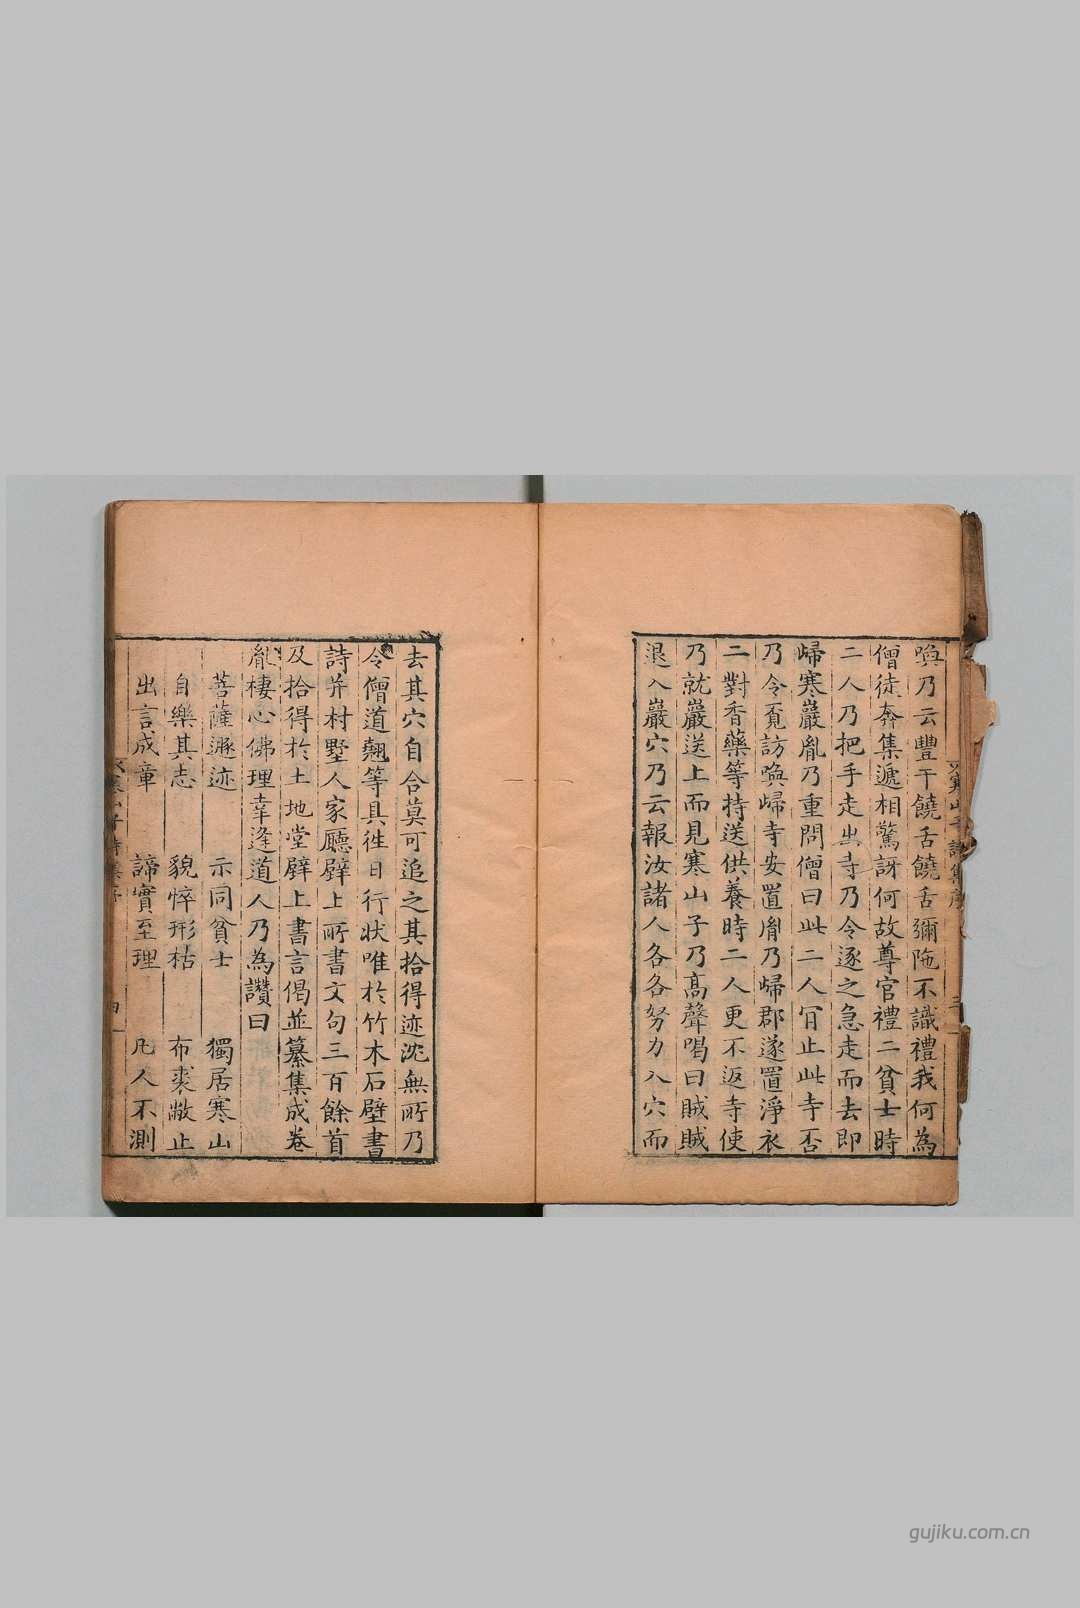 喚乃云豐干饒舌饒舌彌陁不識禮我何為
僧徒奔集遞相驚訝何故尊官禮二貧士時
二人乃把手走出寺乃令逐之急走而去即
歸寒巖胤乃重問僧曰此二人肎止此寺否
乃令覓訪喚歸寺安置胤乃歸郡遂置淨衣
二對香藥等持送供養時二人更不返寺使
乃就巖送上而見寒山子乃高聲喝曰賊賊
退入巖穴乃云報汝諸人各各努力入穴而
寒山子詩集序 三
去其穴自合莫可追之其拾得迹沈無所乃
令僧道翹等具徃日行狀唯於竹木石壁書
詩并村墅人家廳壁上所書文句三百餘首
及拾得於土地堂壁上書言偈並纂集成卷
胤棲心佛理幸逢道人乃為讚曰
菩薩遯迹 示同貧士 獨居寒山
自樂其志 貌悴形枯 布裘敝止
出言成章 諦實至理 凡人不測
寒山子詩集序 四
gujiku.com.cn